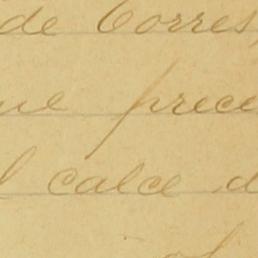 de Corres,
que prece
al calce d